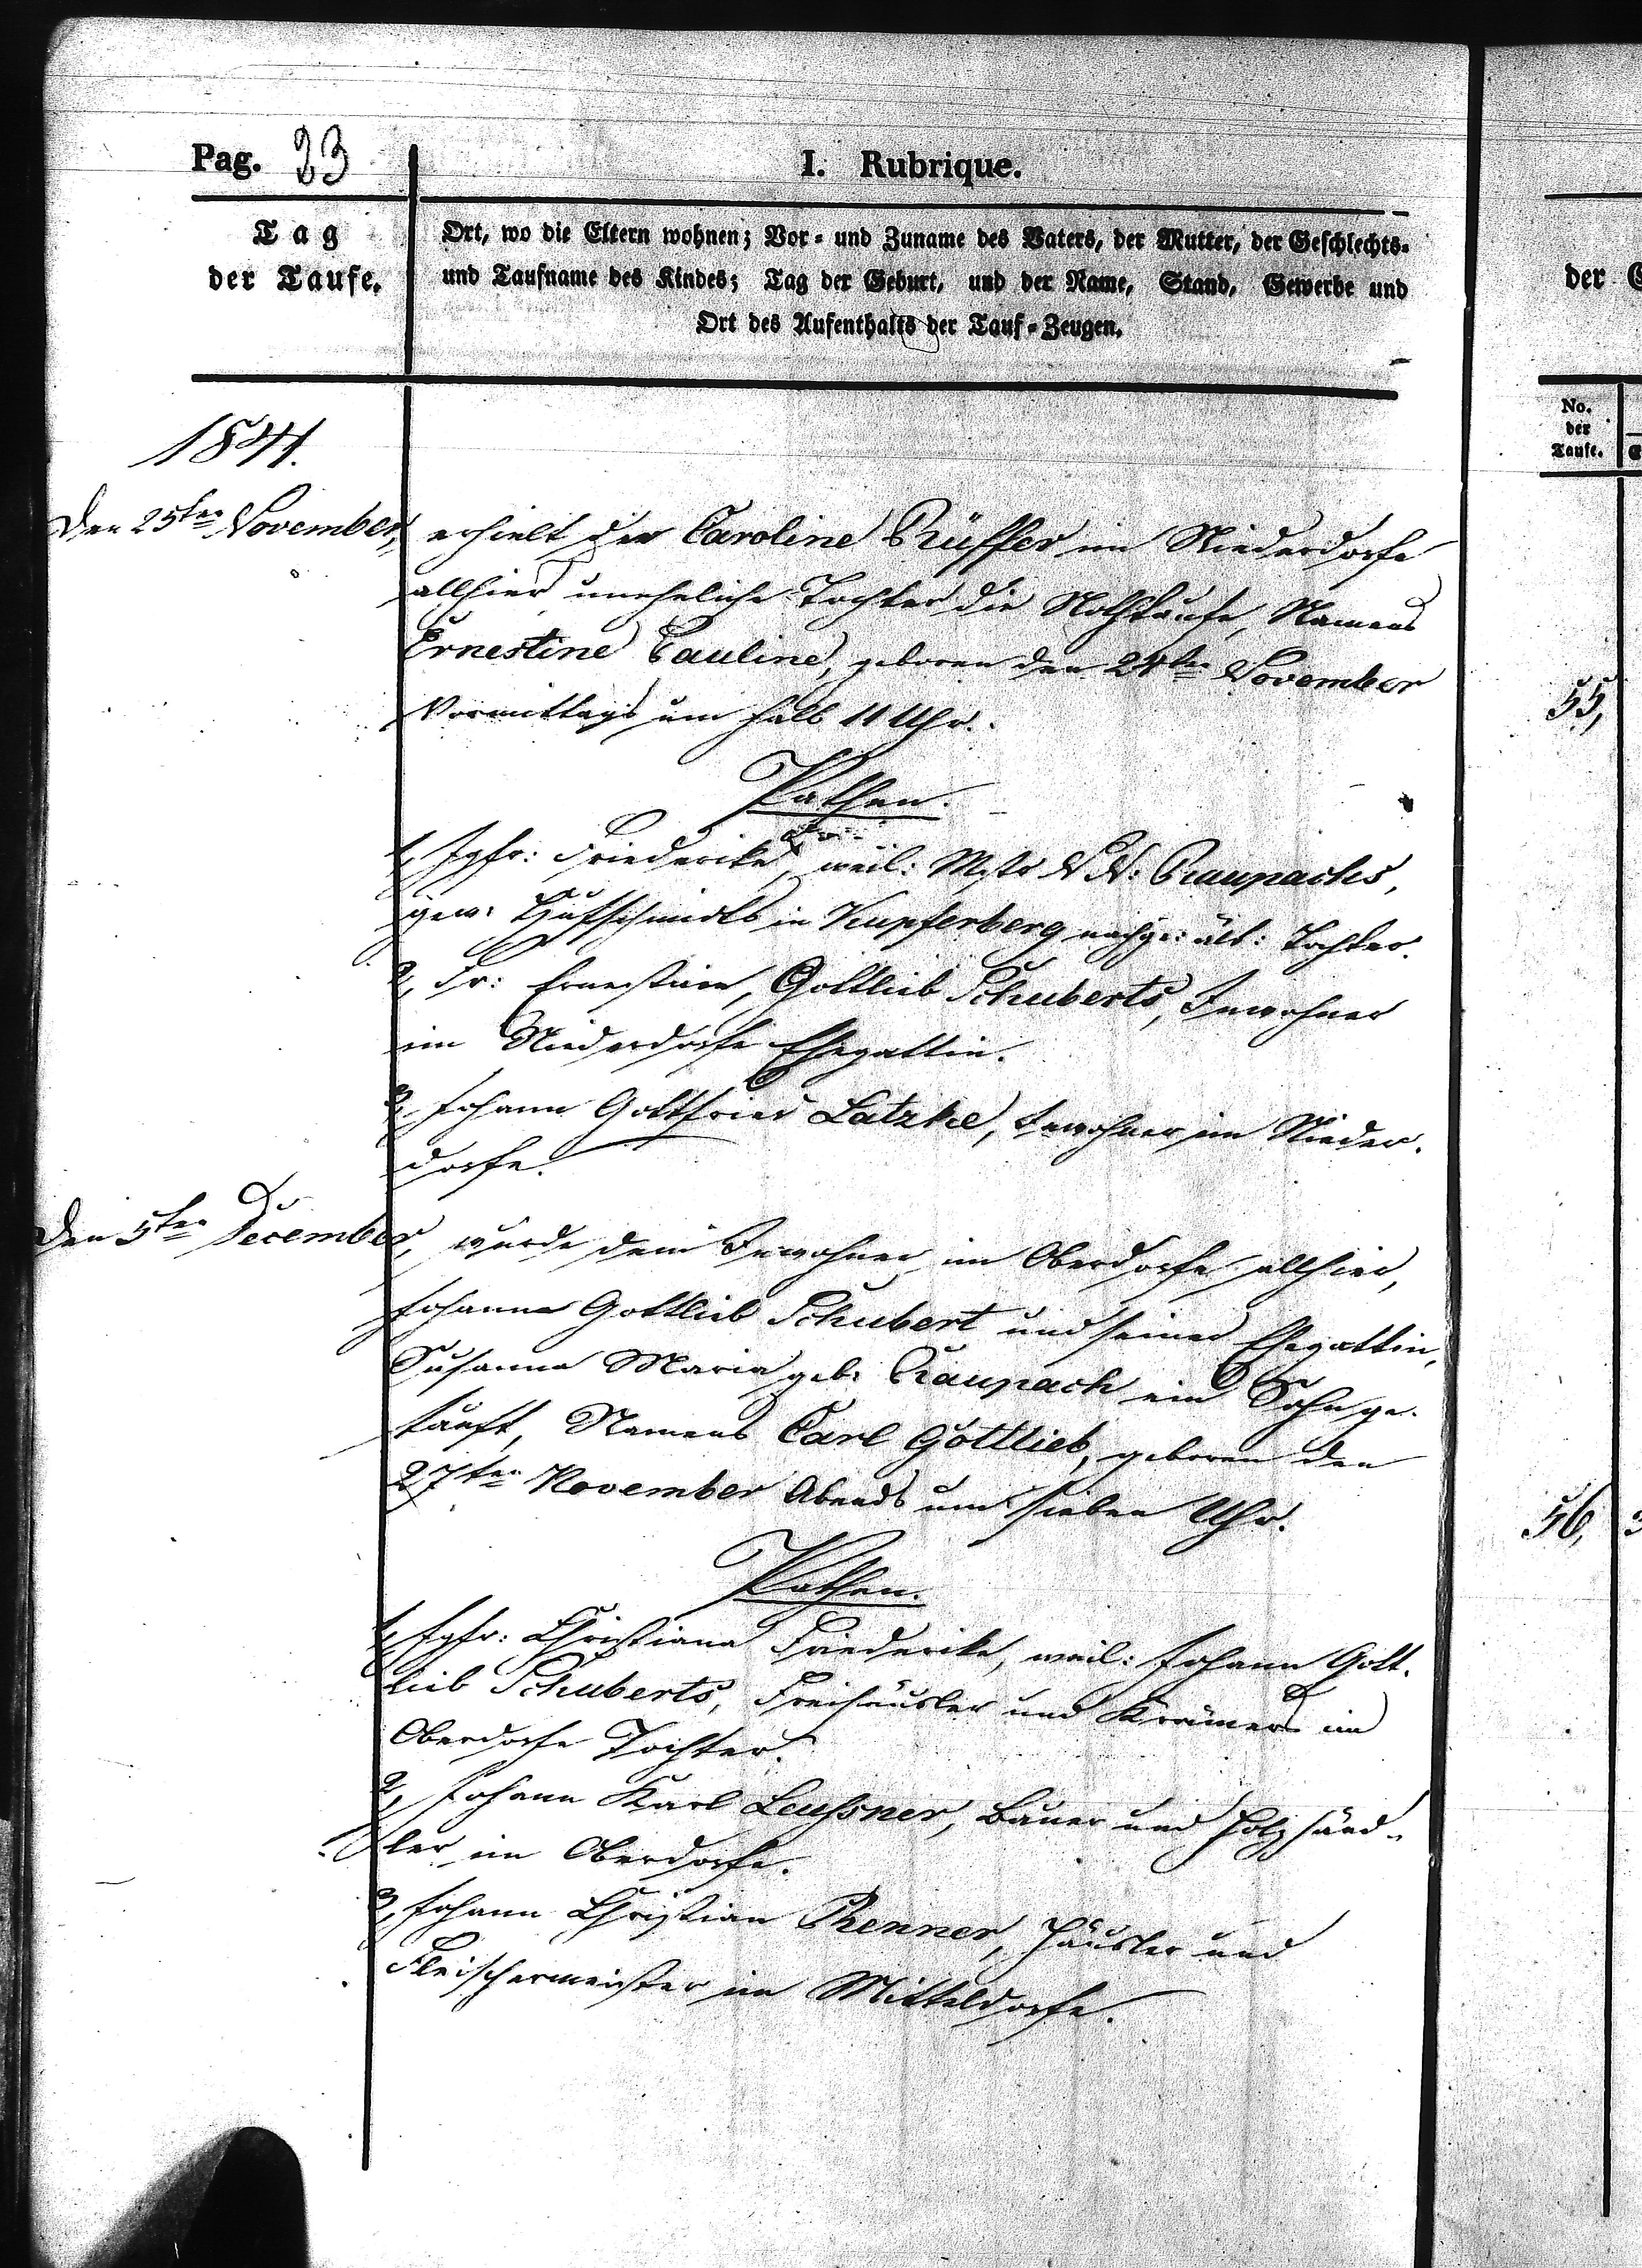 Pag. 23
I. Rubrique.
Tag
der Taufe.
Ort, wo die Eltern wohnen; Vor- und Zuname des Vaters, der Mutter, der Geschlechts-
und Taufname des Kindes; Tag der Geburt, und der Name, Stand, Gewerbe und
Ort des Aufenthalts der Tauf-Zeugen.
1841.
Den 25ten November, erhielt der Caroline Rüffer im Niederdorfe
allhier uneheliche Tochter die Nothtaufe, Namens
Ernestine Pauline, geboren den 24ten November
Vormittags um halb 11 Uhr.
Pathen.
1, Jgfr: Friederike, weil: Mstr N. N: Raupachs,
gew: Hufschmidts in Kupferberg nachge: ält: Tochter.
2, Fr: Ernestine, Gottlieb Schuberts, Inwohner
im Niederdorfe Ehegattin.
3, Johann Gottfried Latzke, Inwohner im Nieder-
dorfe.
Den 5ten December, wurde dem Inwohner im Oberdorfe allhier,
Johann Gottlieb Schubert und seiner Ehegattin,
Susanna Maria geb: Raupach ein Sohn ge-
tauft, Namens Carl Gottlieb, geboren den
27ten November Abends um sieben Uhr.
Pathen.
1, Jgfr: Christiana Friederike, weil: Johann Gott-
lieb Schuberts, Freihäusler und Krämers im
Oberdorfe Tochter.
2, Johann Karl Leussner, Bauer und Holzhänd-
ler im Oberdorfe.
3, Johann Christian Renner, Häusler und
Fleischermeister im Mitteldorfe.
der
No.
der
Taufe.
55,
56,